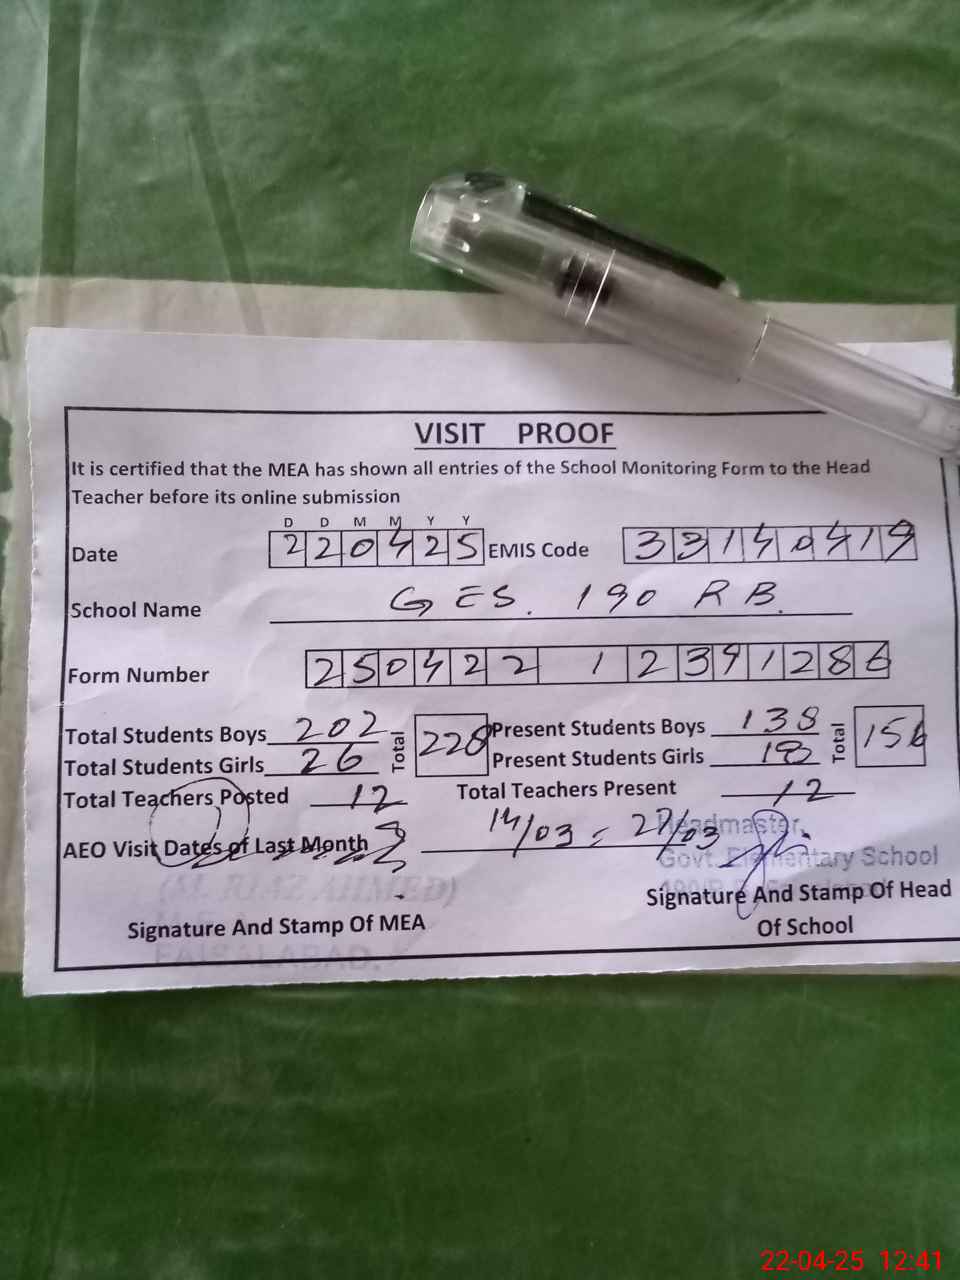 VISIT PROOF
It is certified that the MEA has shown all entries of the School Monitoring Form to the Head
Teacher before its online submission
D D M M Y Y
Date 220425 EMIS Code 33140419
School Name GES. 190 RB.
Form Number 250422 1 2391286
Total Students Boys 202 Total 228 Present Students Boys 138 Total 156
Total Students Girls 26 Present Students Girls 18
Total Teachers Posted 12 Total Teachers Present 12
AEO Visit Dates of Last Month 14/03 = 27/03
Headmaster,
Govt. Elementary School
(M. RIAZ AHMED)
Signature And Stamp Of MEA
Signature And Stamp Of Head
Of School
FAISALABAD.
22-04-25 12:41